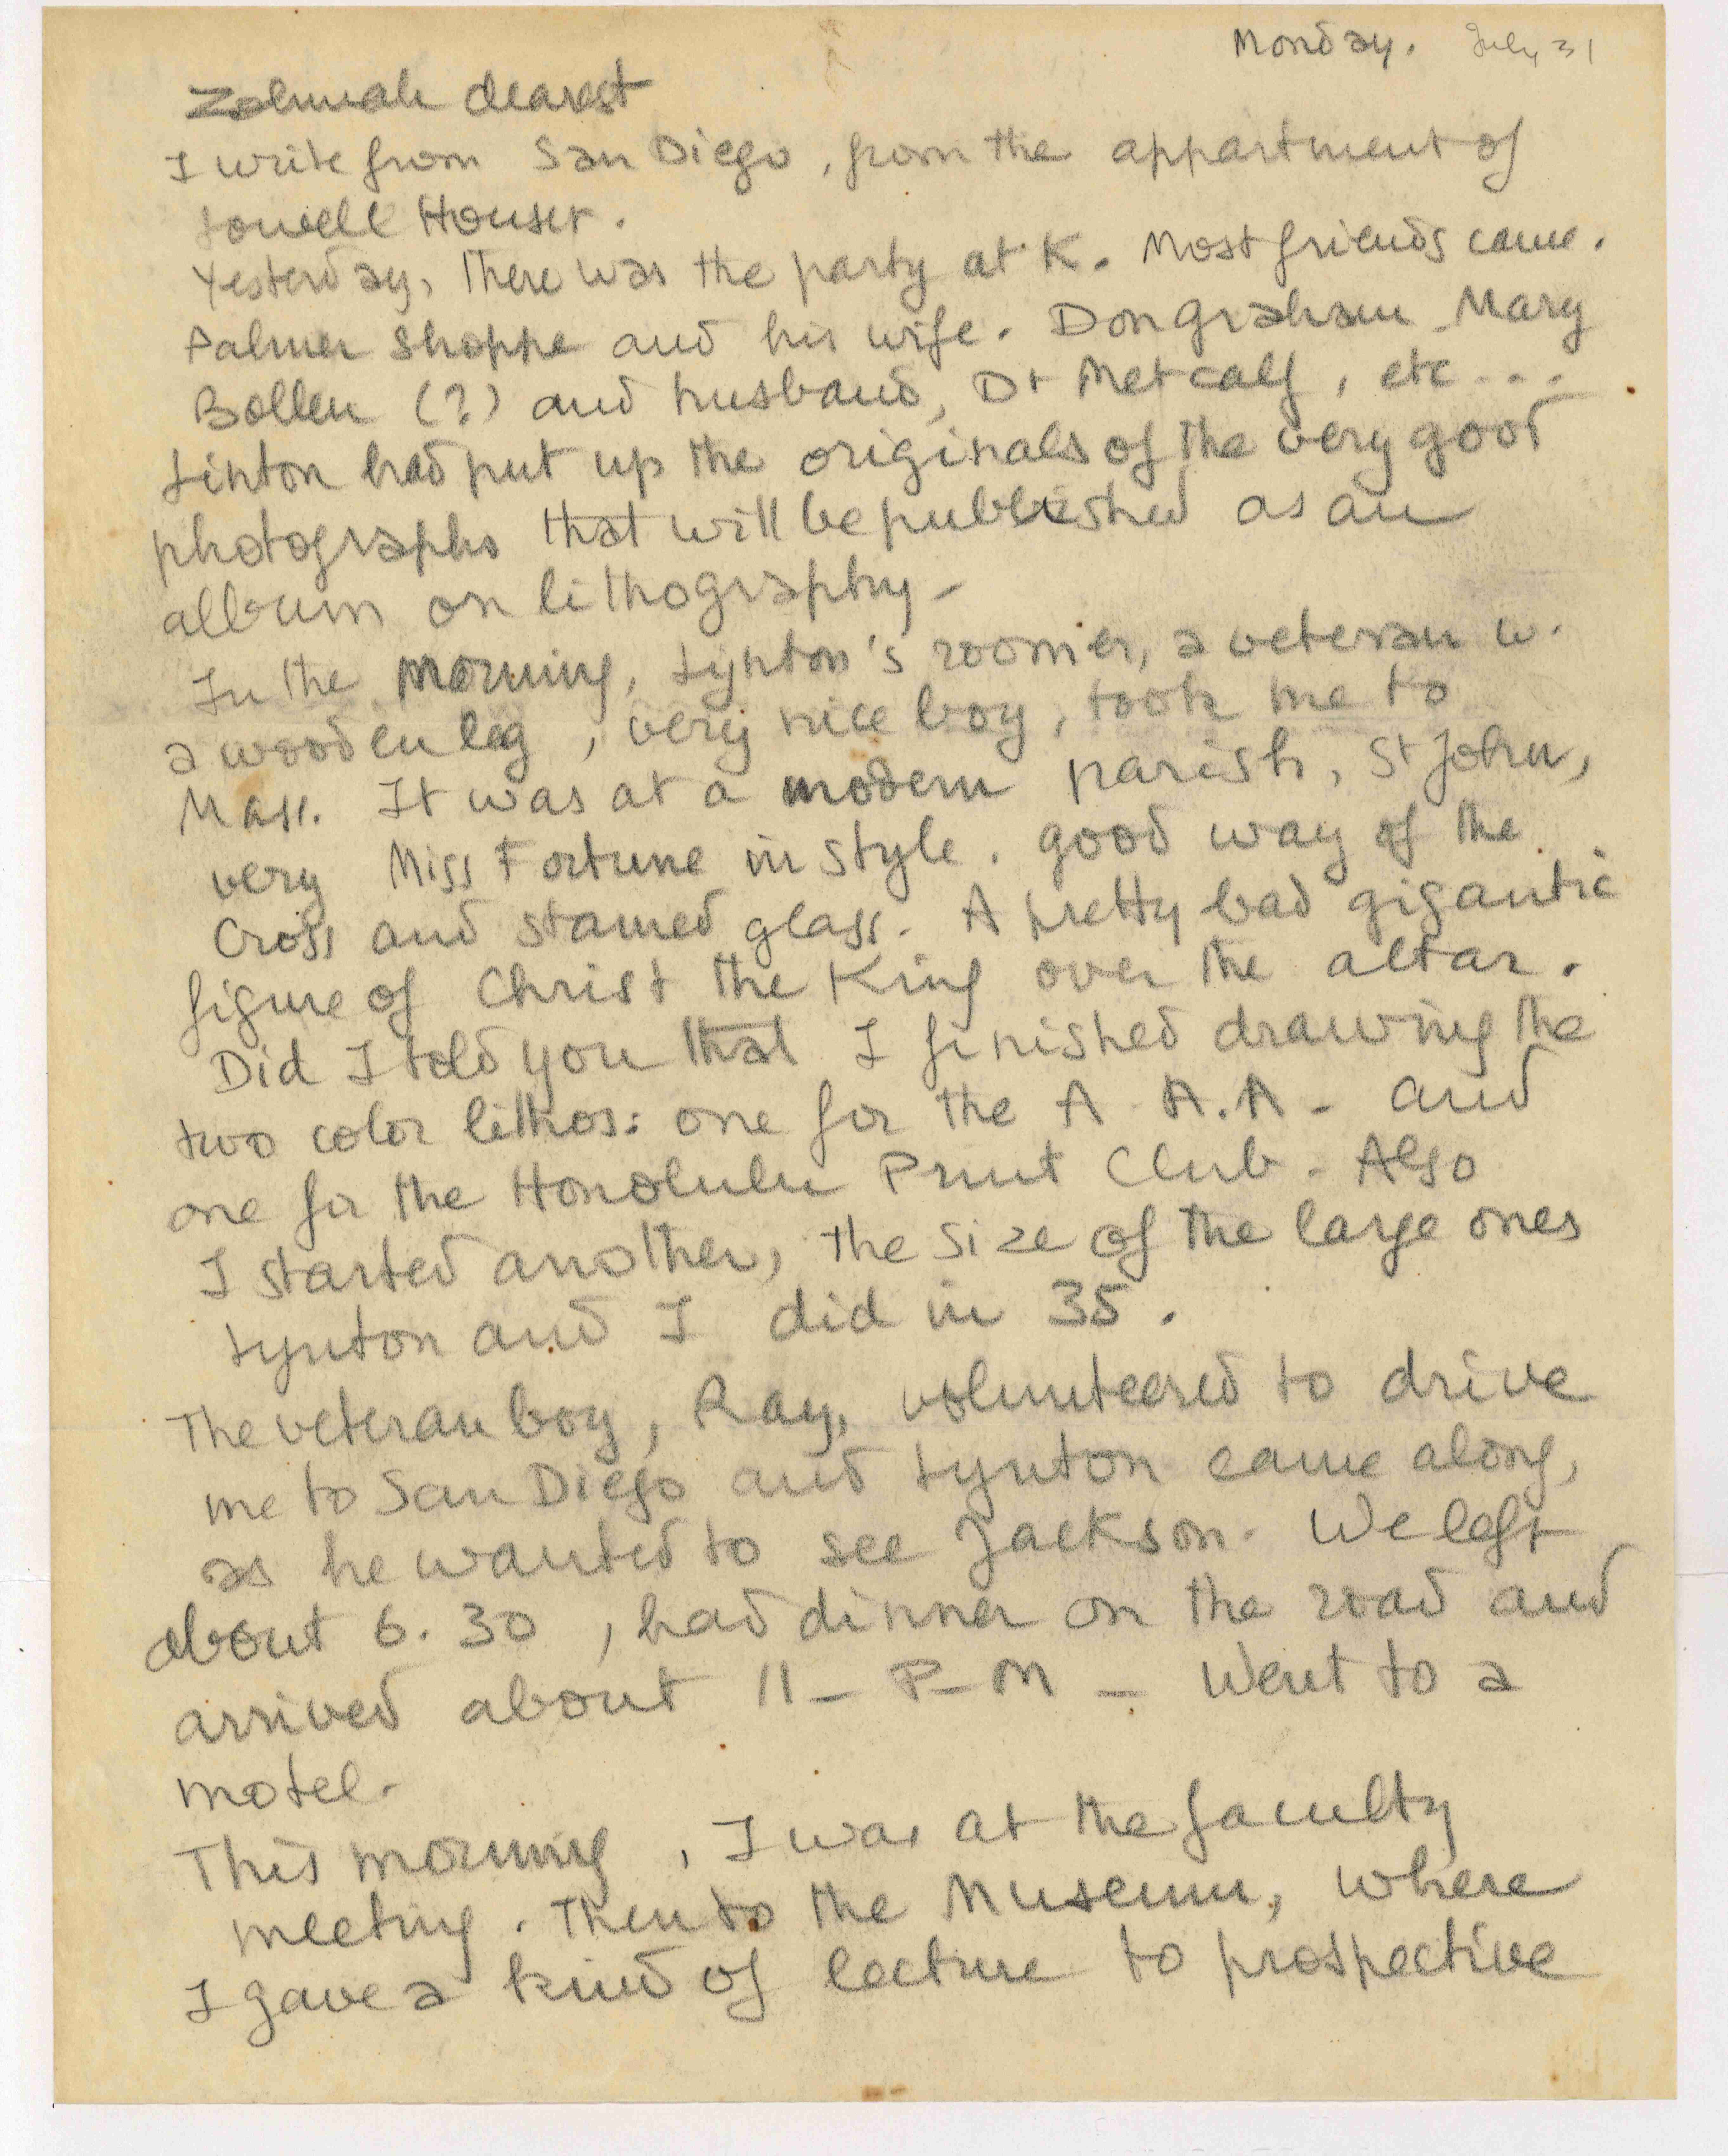 Monday. July 31
Zohmah dearest
I write from San Diego, from the appartment of
Lowell Houser.
Yesterday, there was the party at K. Most friends came.
Palmer Shoppe and his wife. Don Graham Mary
Bollen (?) and husband, Dr Metcalf, etc...
Linton had put up the originals of the very good
photographs that will be published as an
album on lithography -
In the morning, Lynton's roomer, a veteran w.
a wooden leg, very nice boy, took me to
Mass. It was at a modern parish, St John,
very Miss Fortune in style. good way of the
Cross and stained glass. A pretty bad gigantic
figure of Christ the King over the altar.
Did I told you that I finished drawing the
two color lithos: one for the A A.A - and
one for the Honolulu Print Club - Also
I started another, the size of the large ones
Lynton and I did in 35.
The veteran boy, Ray, volunteered to drive
me to San Diego and Lynton came along,
as he wanted to see Jackson. We left
about 6.30, had dinner on the road and
arrived about 11 - P - M - Went to a
motel.
This morning, I was at the faculty
meeting. Then to the Museum, where
I gave a kind of lecture to prospective